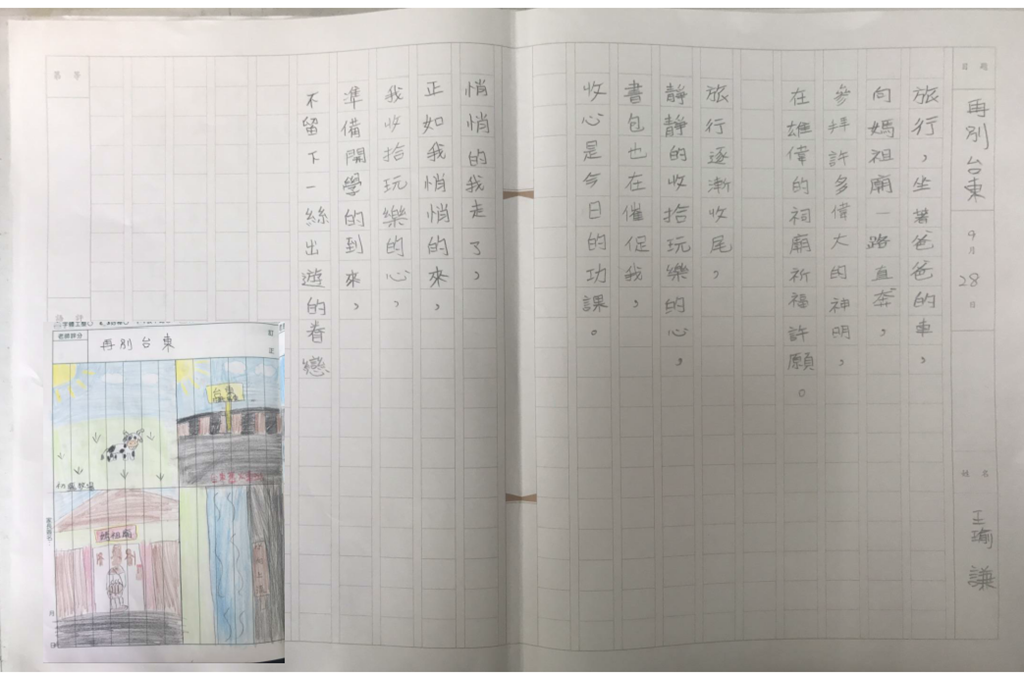 題目
再別台東
9月28日
姓名
王瑜謙
旅行，坐著爸爸的車，
向媽祖廟一路直奔，
參拜許多偉大的神明，
在雄偉的祠廟祈福許願。
旅行逐漸收尾，
靜靜的收拾玩樂的心，
書包也在催促我，
收心是今日的功課。
悄悄的我走了，
正如我悄悄的來，
我收拾玩樂的心，
準備開學的到來，
不留下一絲出遊的眷戀
再別台東
台東
初鹿牧場
媽祖廟